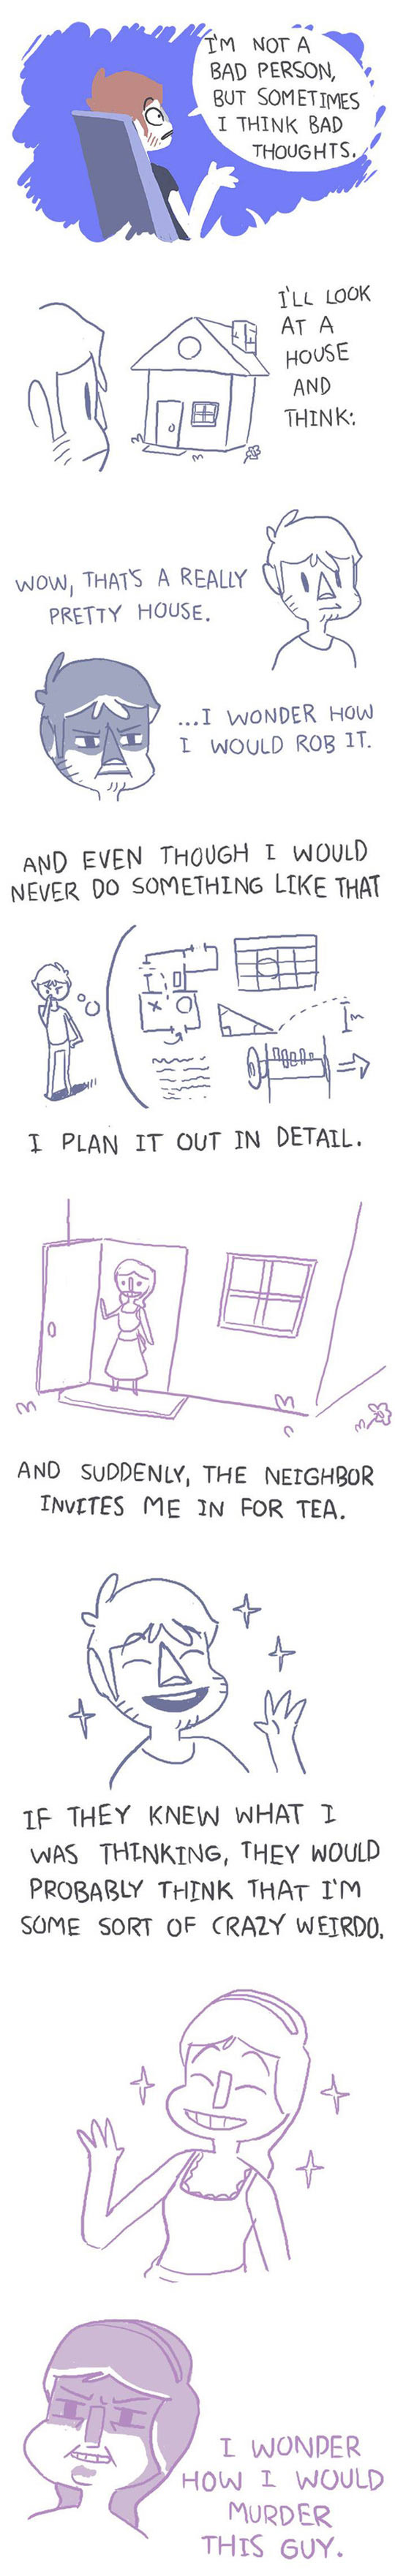 I'M NOT A
BAD PERSON,
BUT SOMETIMES
I THINK BAD
THOUGHTS.
I'LL LOOK
AT A
HOUSE
AND
THINK:
WOW, THAT'S A REALLY
PRETTY HOUSE.
...I WONDER HOW
I WOULD ROB IT.
AND EVEN THOUGH I WOULD
NEVER DO SOMETHING LIKE THAT
I PLAN IT OUT IN DETAIL.
AND SUDDENLY, THE NEIGHBOR
INVITES ME IN FOR TEA.
IF THEY KNEW WHAT I
WAS THINKING, THEY WOULD
PROBABLY THINK THAT I'M
SOME SORT OF CRAZY WEIRDO.
I WONDER
HOW I WOULD
MURDER
THIS GUY.